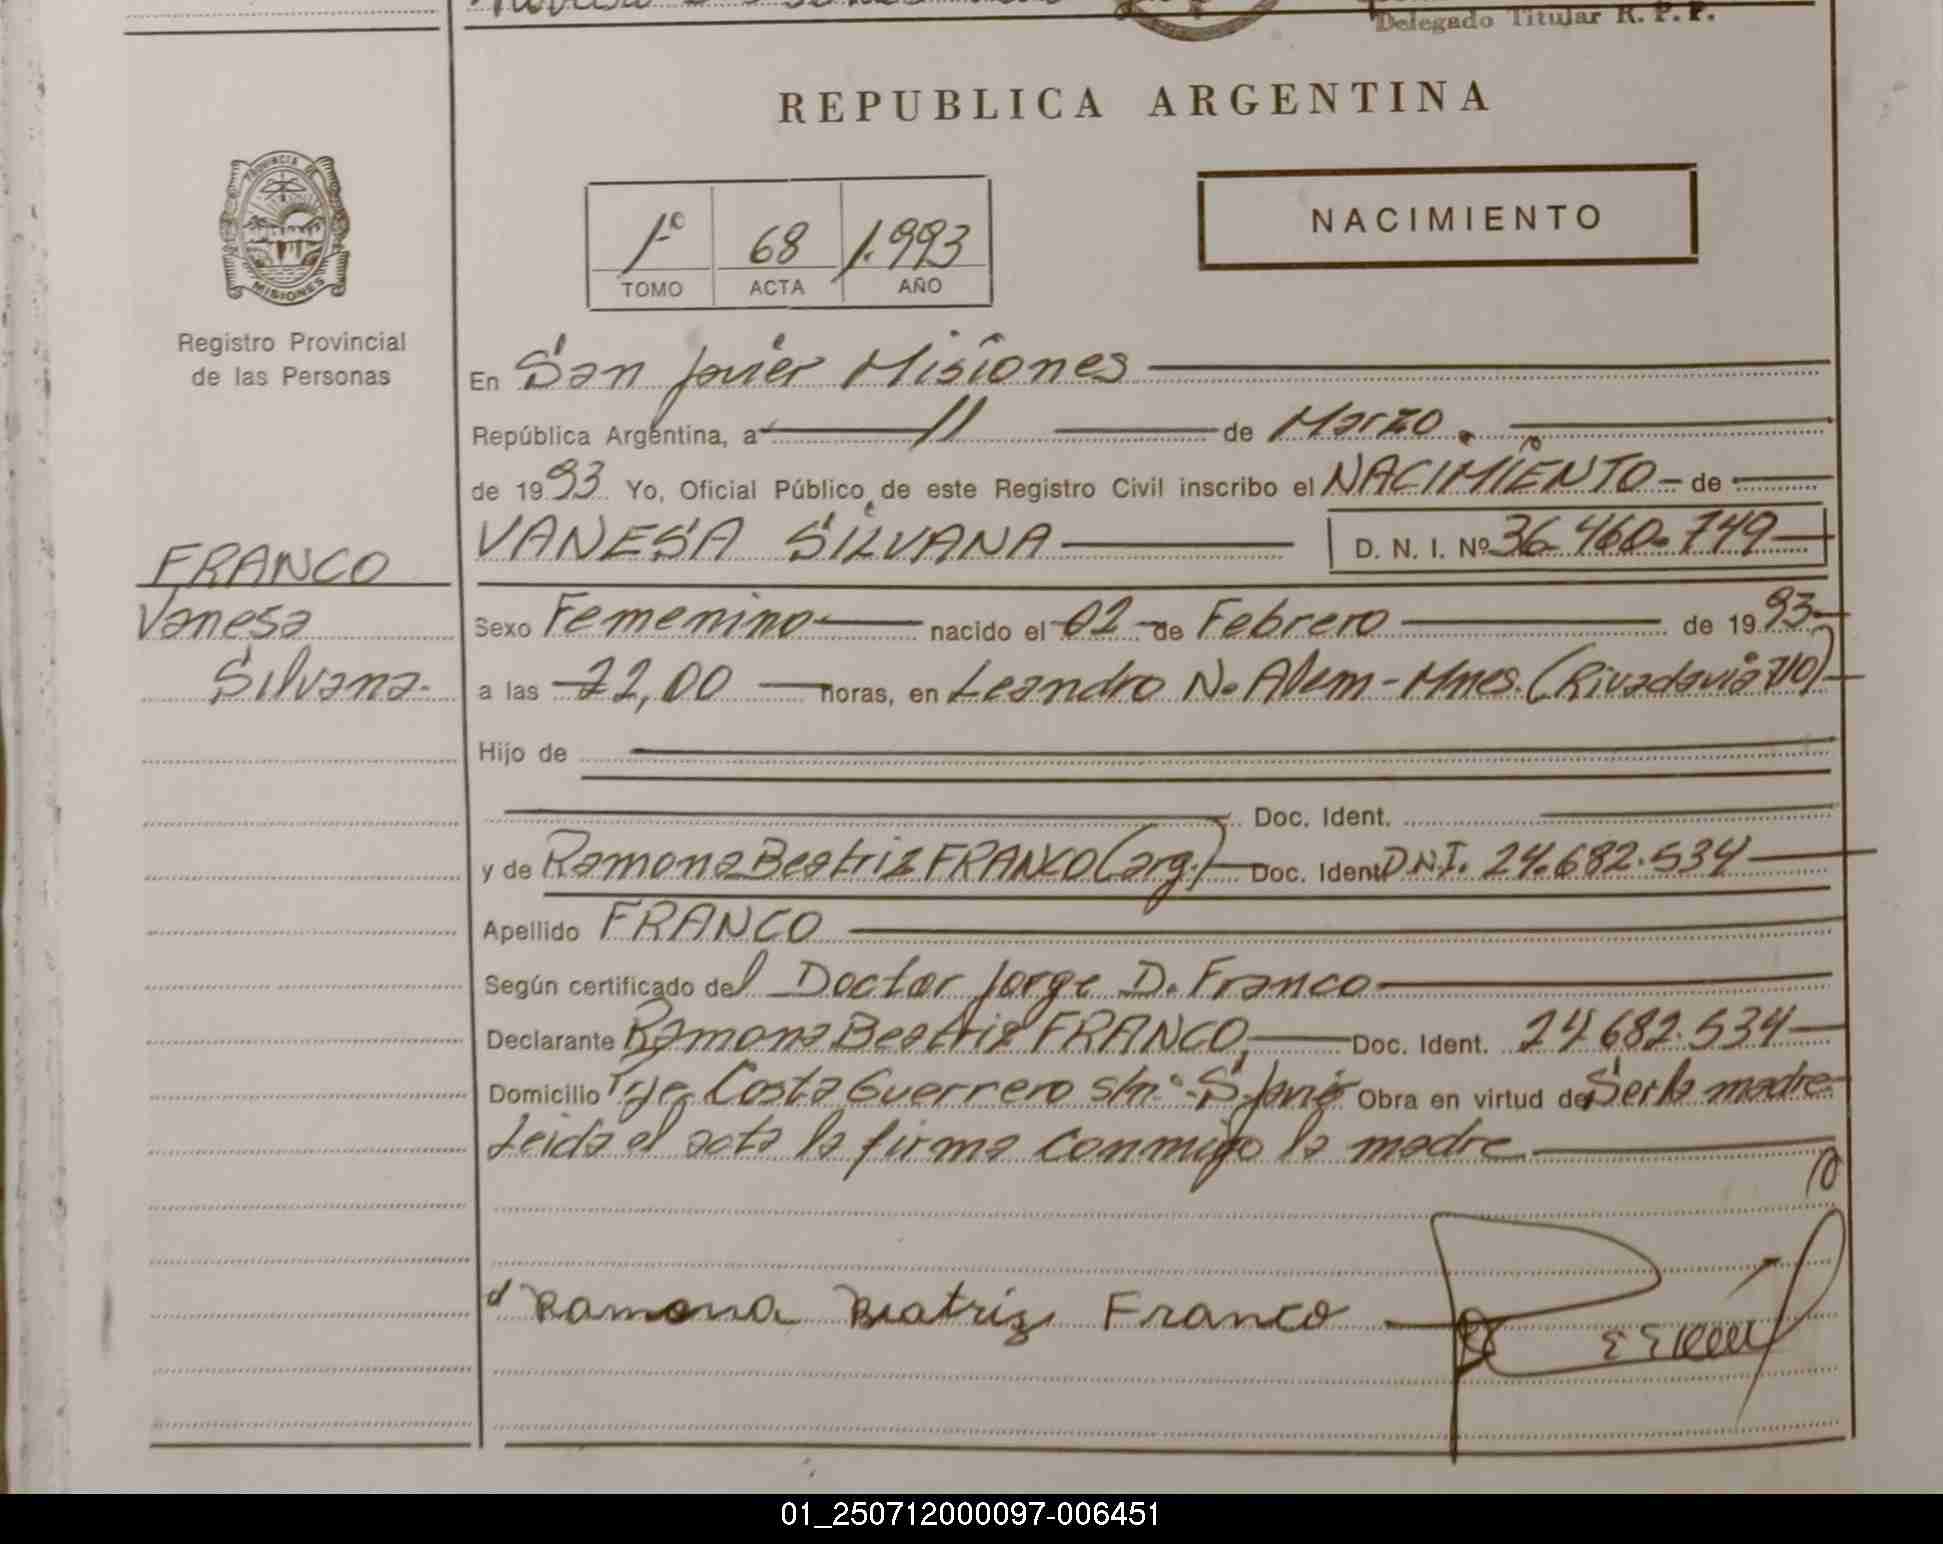 Delegado Titular R. P. P.
REPUBLICA ARGENTINA
PROVINCIA DE
MISIONES
1º 68 1.993
TOMO ACTA AÑO
NACIMIENTO
Registro Provincial
de las Personas
En San Javier Misiones
República Argentina, a 11 de Marzo.
de 1993 Yo, Oficial Público de este Registro Civil inscribo el NACIMIENTO de
VANESA SILVANA D. N. I. Nº 36.460.749
FRANCO
Vanesa
Silvana.
Sexo Femenino nacido el 02 de Febrero de 1993
a las 22,00 horas, en Leandro N. Alem - Mnes. (Rivadavia 710)
Hijo de
Doc. Ident.
y de Ramona Beatriz FRANCO (arg.) Doc. Ident D.N.I. 24.682.534
Apellido FRANCO
Según certificado del Doctor Jorge D. Franco
Declarante Ramona Beatriz FRANCO, Doc. Ident. 24.682.534
Domicilio Costa Guerrero s/nº Obra en virtud de Ser la madre
Leida el acta la firma conmigo la madre
Ramona Beatriz Franco
01_250712000097-006451